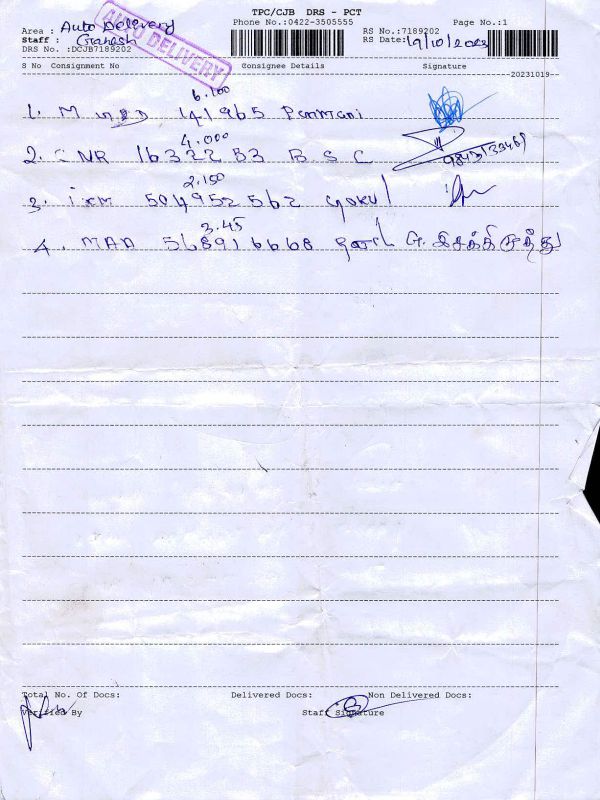 TPC/CJB DRS - PCT
Area : Auto Delivery Phone No.:0422-3505555 RS No.:7189202 Page No.:1
Staff : Ganesh RS Date: 19/10/2023
DRS No. :DCJB7189202
AUTO DELIVERY
S No Consignment No Consignee Details Signature
20231019
6.100
1. M 141965 Panmani
4.000
2. NR 1632283 B S C 9843133461
2.150
3. ixm 504952562 gokul
3.45
4. MAA 568916668
Total No. Of Docs: Delivered Docs: Non Delivered Docs:
Verified By Staff Signature